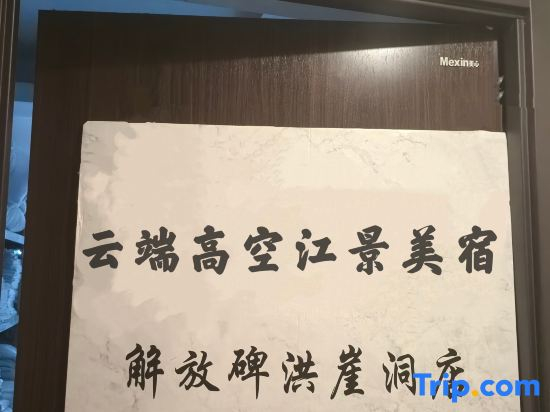 Mexin美心
云端高空江景美宿
解放碑洪崖洞店
Trip.com